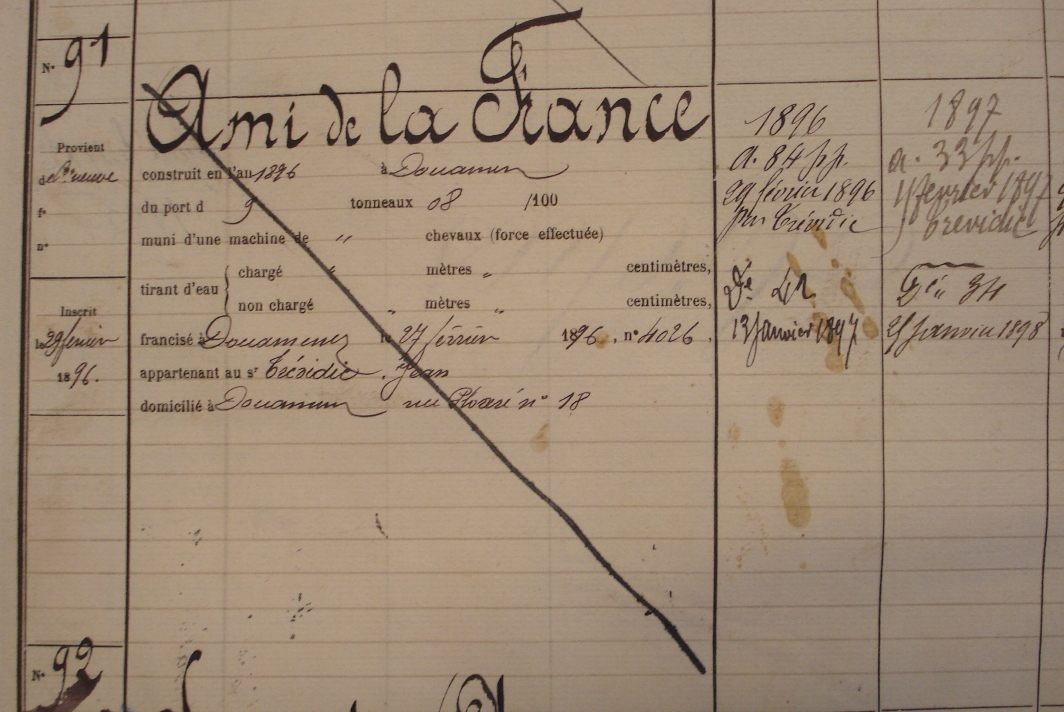 N° 91
Ami de la France
Provient
de Con neuve
f°
n°
construit en l'an 1896 à Douarnenez
du port d 9 tonneaux 08 /100
muni d'une machine de " chevaux (force effectuée)
tirant d'eau { chargé " mètres " centimètres,
non chargé " mètres " centimètres,
Inscrit
le 29 février
1896.
francisé à Douarnenez le 27 février 1896, n° 4026.
appartenant au sr Trévidic Jean
domicilié à Douarnenez rue Ploaré n° 18
1896
a. 84 pp.
29 février 1896
Trévidic
Dé 42
13 Janvier 1897
1897
a. 33 pp.
1 février 1897
Trévidic
34
Janvier 1898
N° 92